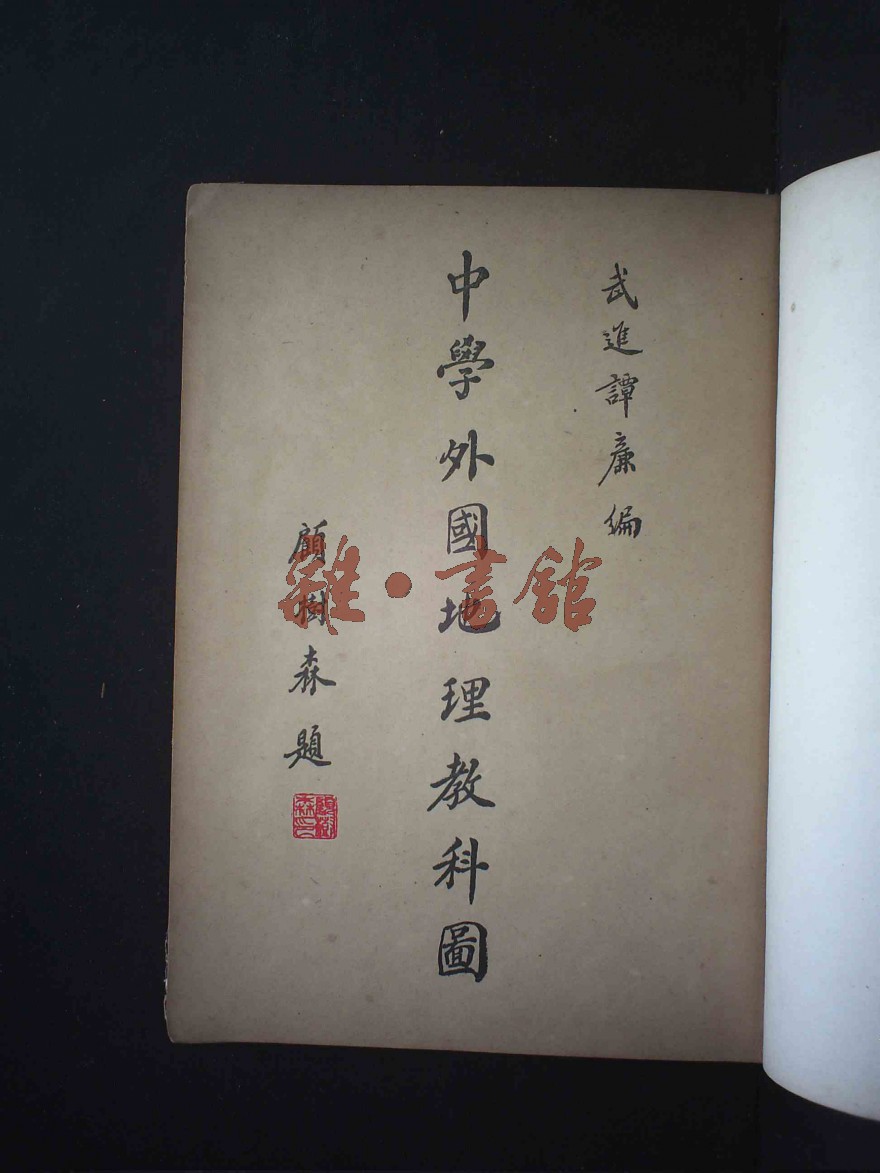 武進譚廉編
中學外國地理教科圖
顧樹森題
雜·書館